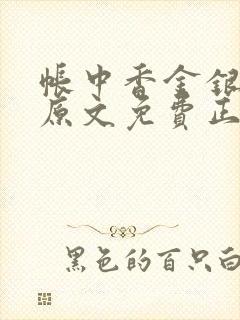 帐中香金银
原文免費正
黑色的百只白